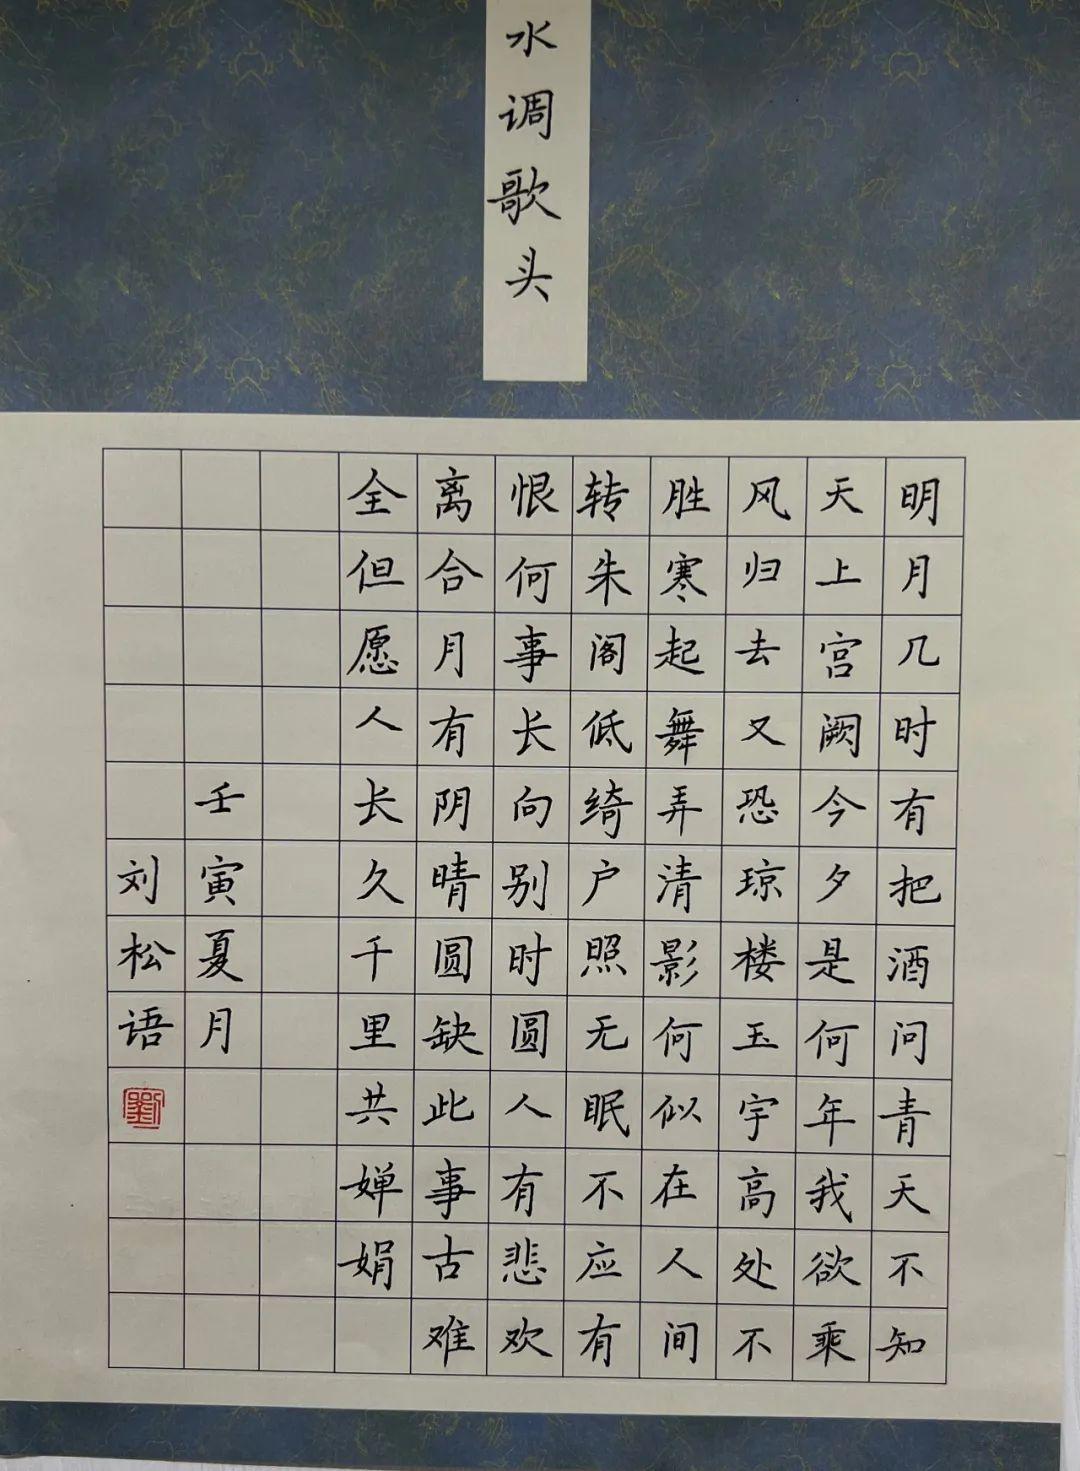 水调歌头
明月几时有把酒问青天不知
天上宫阙今夕是何年我欲乘
风归去又恐琼楼玉宇高处不
胜寒起舞弄清影何似在人间
转朱阁低绮户照无眠不应有
恨何事长向别时圆人有悲欢
离合月有阴晴圆缺此事古难
全但愿人长久千里共婵娟
壬寅夏月
刘松语
劉